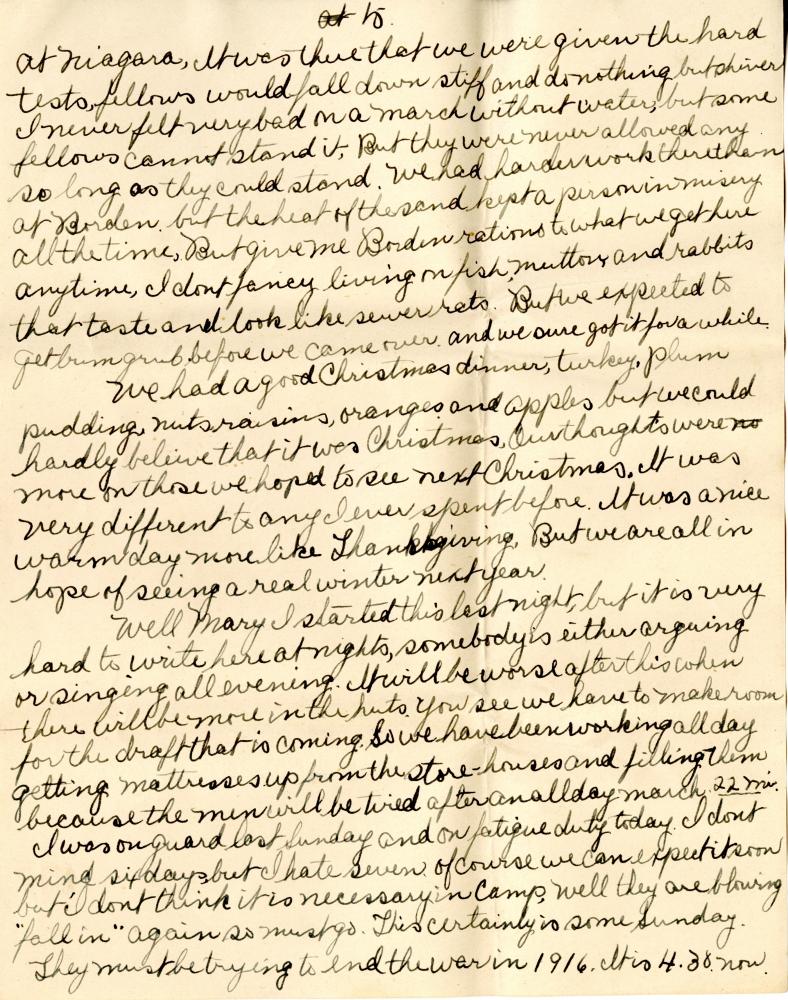 at to.
at Niagara, It was there that we were given the hard
tests, fellows would fall down stiff and do nothing but shiver
I never felt very bad on a march without water, but some
fellows cannot stand it, But they were never allowed any
so long as they could stand. We had harder work there than
at Borden. but the heat of the sand kept a person in misery
all the time, But give me Borden rations to what we get here
anytime, I dont fancy living on fish, mutton, and rabbits
that taste and look like sewer rats. But we expected to
get bum grub, before we came over. and we sure got it for a while.
We had a good Christmas dinner, turkey, plum
pudding, nuts, raisins, oranges and apples but we could
hardly beleive that it was Christmas, Our thoughts were no
more on those we hoped to see next Christmas. It was
very different to any I ever spent before. It was a nice
warm day more like Thanksgiving, But we are all in
hope of seeing a real winter next year.
Well Mary I started this last night, but it is very
hard to write here at nights, somebody is either arguing
or singing all evening. It will be worse after this when
there will be more in the huts. You see we have to make room
for the draft that is coming. So we have been working all day
getting mattresses up from the store-houses and filling them
because the men will be tired after an all day march. 22 mi.
I was on guard last Sunday and on fatigue duty today. I dont
mind six days but I hate seven. of course we can expect it soon
but i dont think it is necessary in Camp, Well they are blowing
"fall in" again so must go. This certainly is some Sunday.
They must be trying to end the war in 1916. It is 4.38. now.